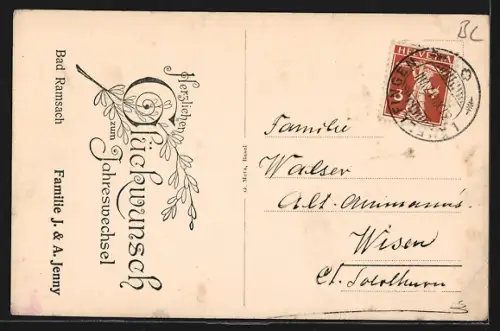 BL
Herzlichen
Glückwunsch
zum
Jahreswechsel
Bad Ramsach
Familie J. & A. Jenny
G. Metz, Basel
HELVETIA
3
Familie
Walser
Alt. Ammann's
Wisen
Ct. Solothurn